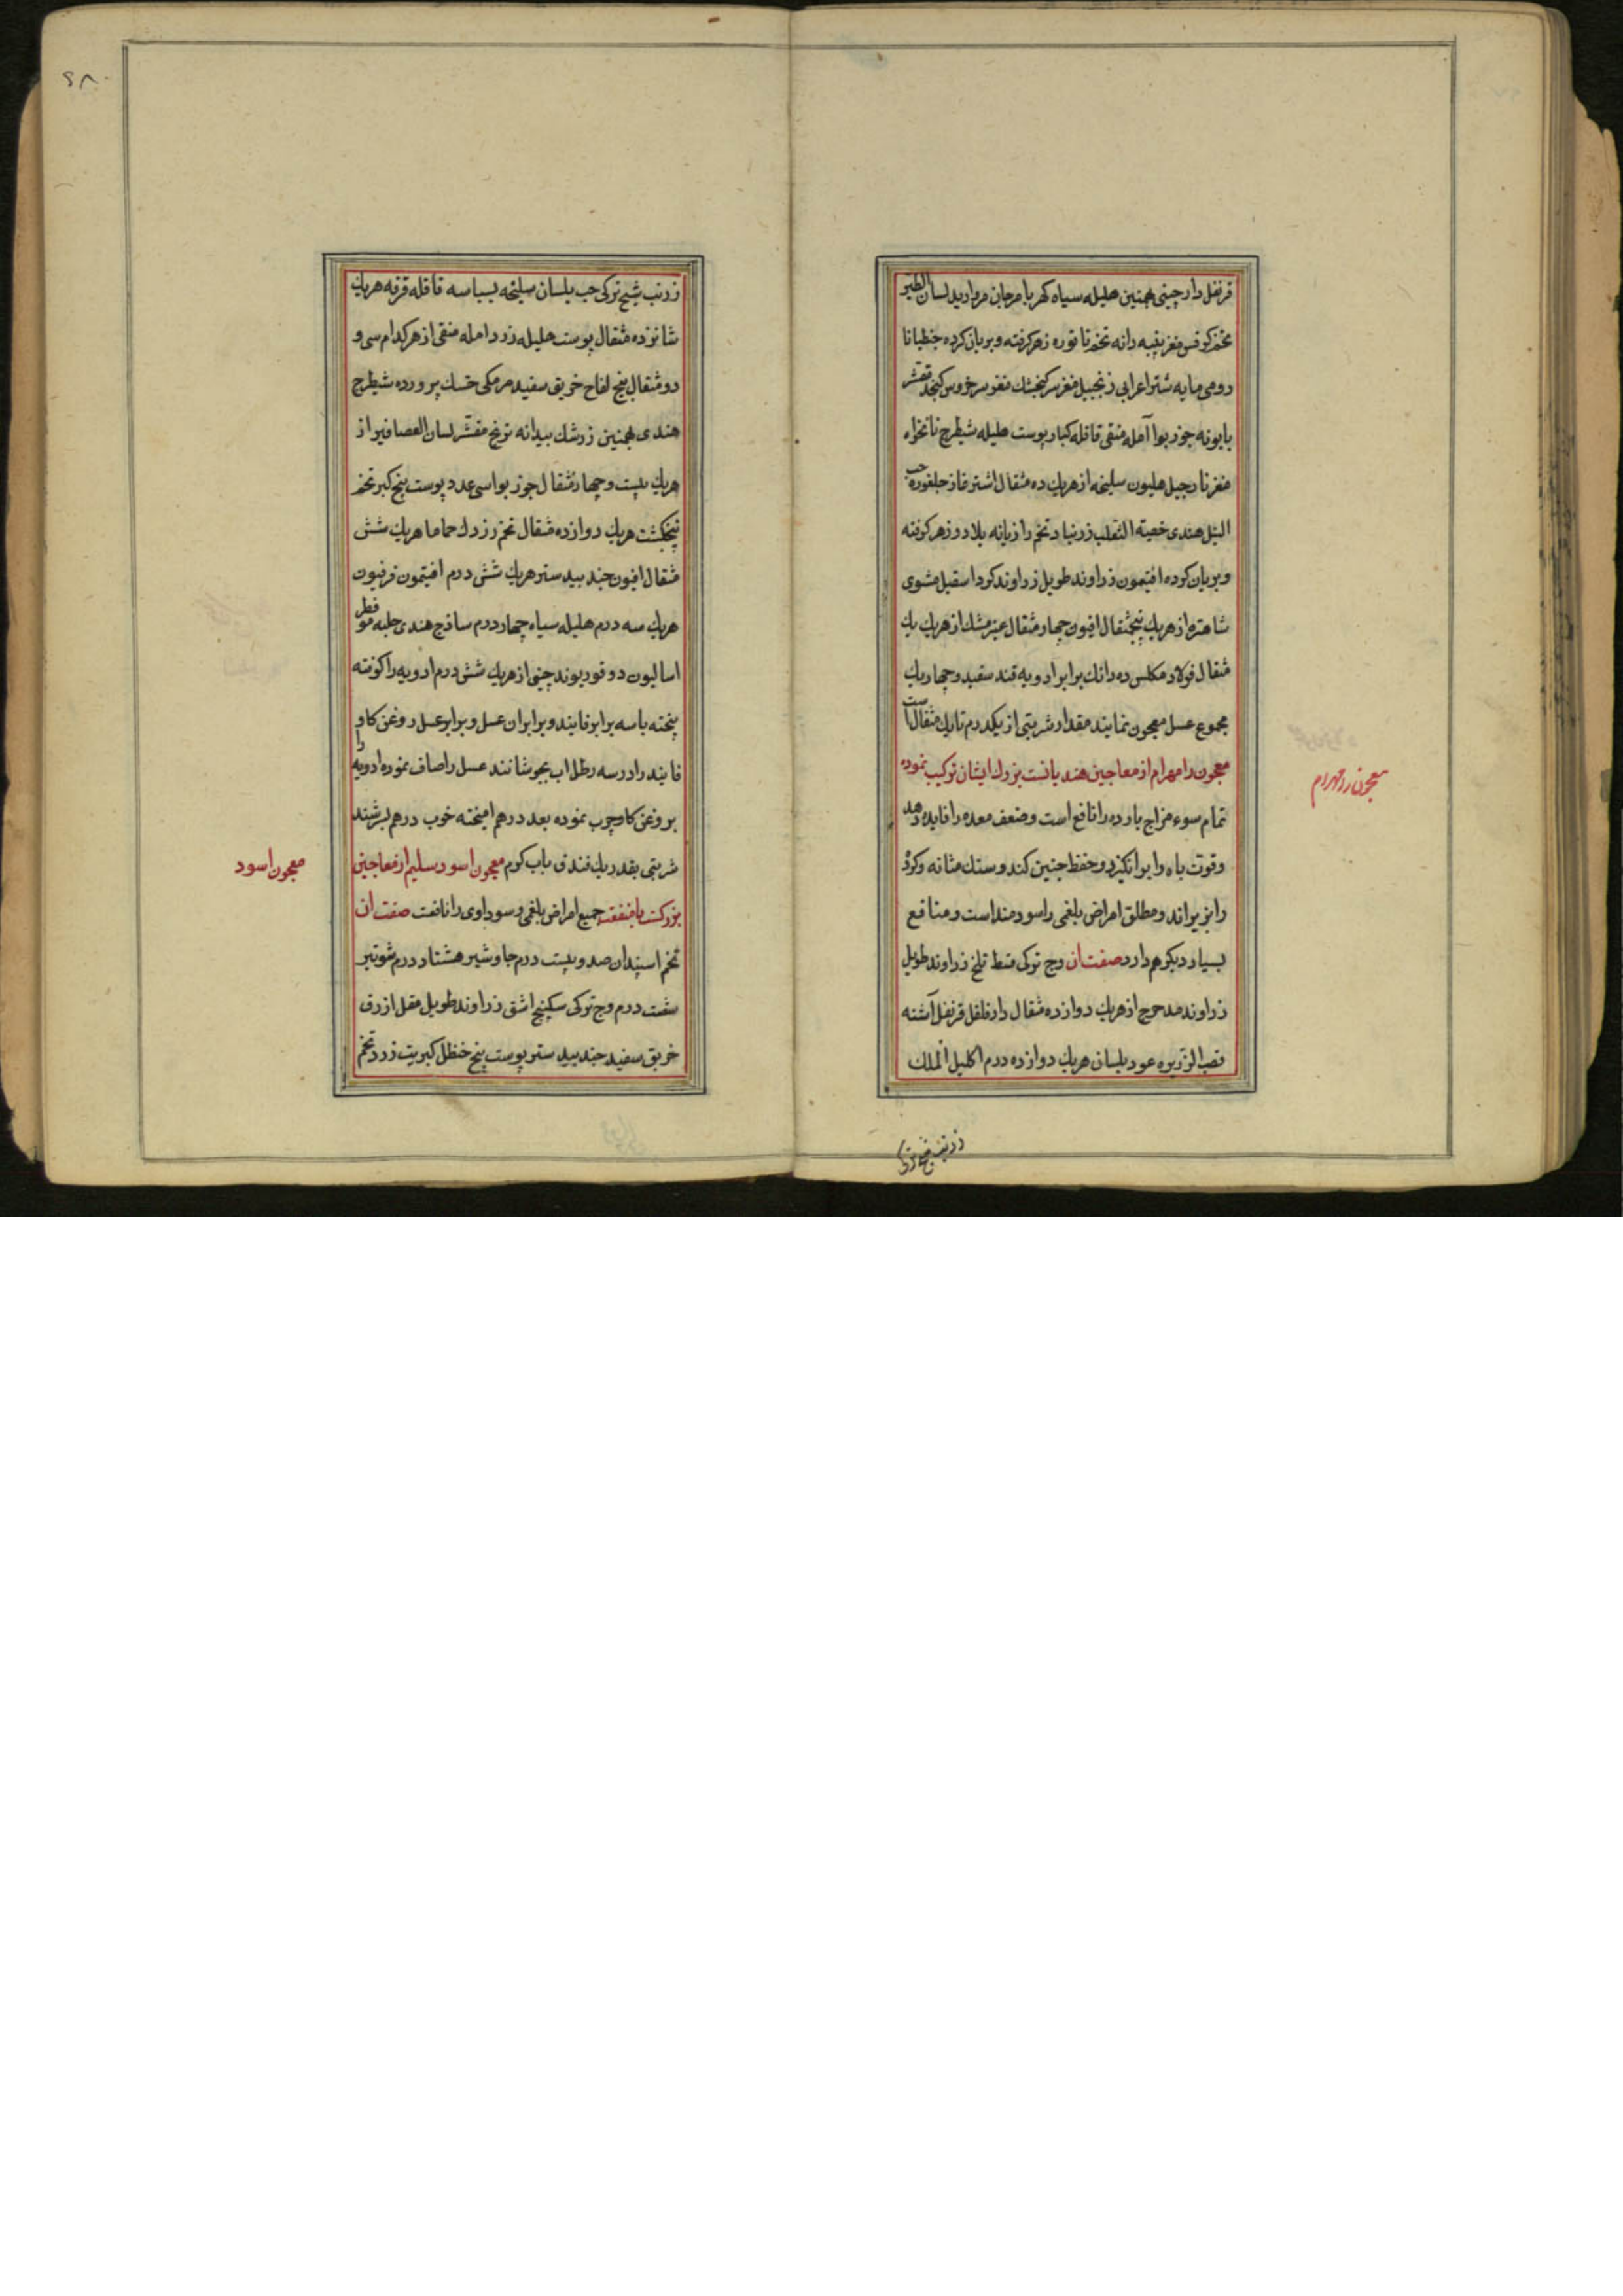 قرنفل دارچینی بهمنین هلیله سیاه کهربا مرجان مروارید لسان الطیر
تخم کرفس مغز پنبه دانه تخم تاتوره زهر کرفته و بریان کرده جنطیانا
رومی مایه شتر اعرابی زنجبیل مغز سر کنجشک مغز سر خروس کنجد مقشر
بابونه جوز بوا آمله منقی قاقله کبار پوست هلیله شیطرج نانخواه
مغز نارجیل هلیون سلیخه از هریك ده مثقال اشترغاز جلغوزه حب
النیل هندی خصیته الثعلب زرنباد تخم رازیانه بلادر زهر کرفته
و بریان کرده افتیمون زراوند طویل زراوند کرد اسقیل مشوی
شاهتره از هریك پنجمثقال افیون چهار مثقال عنبر مشك از هریك یك
مثقال فولاد مکلس ده دانك برابر ادویه قند سفید و چهار یك
مجموع عسل معجون نمایند مقدار شربتی از یکدرم تا یك مثقال است
معجون رامهرام از معاجین هندیانست بزرك ایشان ترکیب نموده
تمام سوء مزاج بارده را نافع است و ضعف معده را فایده دهد
و قوت باه را برانکیزد و حفظ جنین کند و سنك مثانه و کرده
را بریزاند و مطلق امراض بلغمی را سودمند است و منافع
بسیار دیکر هم دارد صفت ان وج ترکی قسط تلخ زراوند طویل
زراوند مدحرج از هریك دوازده مثقال دارفلفل قرنفل اشنه
قصب الزریره عود بلسان هریك دوازده درم اکلیل الملك
معجون رامهرام
زرنب شیح ترکی
۶۸
زرنب شیح ترکی حب بلسان سلیخه بسباسه قاقله قرفه هریك
شانزده مثقال پوست هلیله زرد امله منقی از هر کدام سی و
دو مثقال بیخ لفاح خربق سفید مر مکی خسك پرورده شیطرج
هندی بهمنین زرشك بیدانه ترنج مقشر لسان العصافیر از
هریك بیست و چهار مثقال جوز بوا سی عدد پوست بیخ کبر تخم
پنجنکشت هریك دوازده مثقال تخم زردك حماما هریك شش
مثقال افیون جندبیدستر هریك شش درم افیتمون فرفیون
هریك سه درم هلیله سیاه چهار درم ساذج هندی حلبه موفطر
اسالیون دوقو ریوند چینی از هریك شش درم ادویه را کوفته
پخته با سه برابر فانیند و برابر ان عسل و برابر عسل روغن کاو
فانیند را در سه رطل اب بجوشانند عسل را صاف نموده ادویه را
بروغن کاو چرب نموده بعد درهم امیخته خوب درهم بسرشند
شربتی بقدر یك فندق باب کرم معجون اسود سلیم از معاجین
بزرکست با منفعت جمیع امراض بلغمی و سوداوی را نافعت صفت ان
تخم اسپندان صد و بیست درم جاوشیر هشتاد درم شونیز
شصت درم وج ترکی سکبینج اشق زراوند طویل مقل ازرق
خربق سفید جندبیدستر پوست بیخ حنظل کبریت زرد تخم
معجون اسود